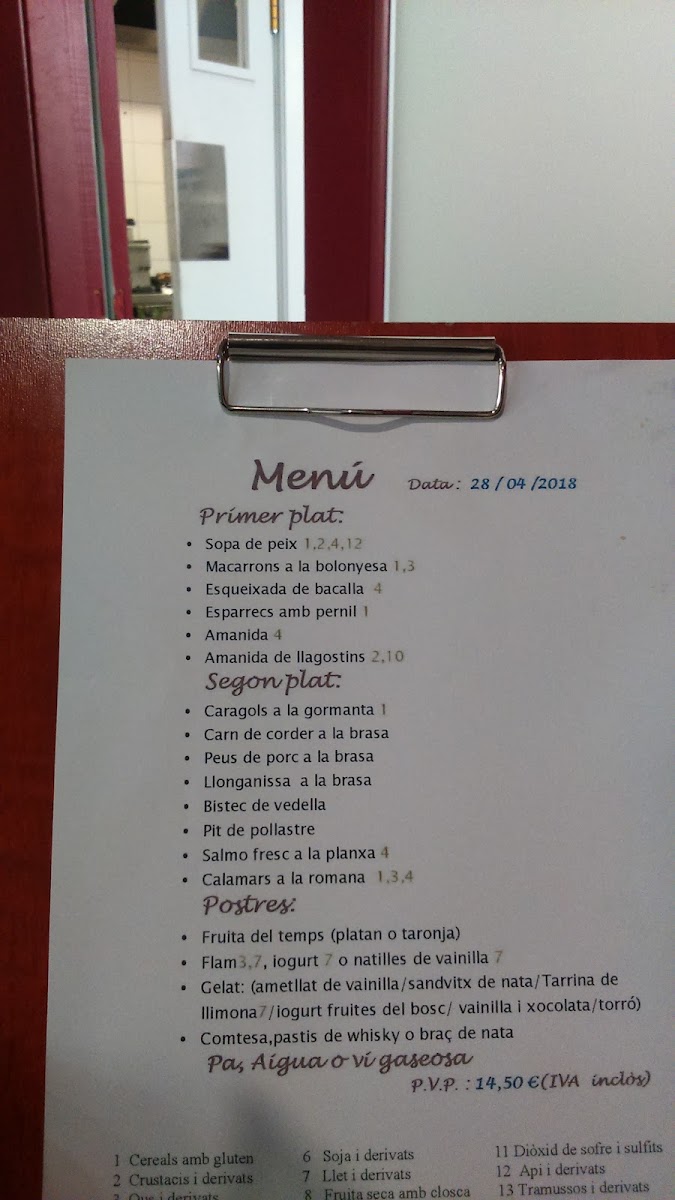 Menú Data: 28/04/2018
Primer plat:
• Sopa de peix 1,2,4,12
• Macarrons a la bolonyesa 1,3
• Esqueixada de bacalla 4
• Esparrecs amb pernil 1
• Amanida 4
• Amanida de llagostins 2,10
Segon plat:
• Caragols a la gormanta 1
• Carn de corder a la brasa
• Peus de porc a la brasa
• Llonganissa a la brasa
• Bistec de vedella
• Pit de pollastre
• Salmo fresc a la planxa 4
• Calamars a la romana 1,3,4
Postres:
• Fruita del temps (platan o taronja)
• Flam3,7, iogurt 7 o natilles de vainilla 7
• Gelat: (ametllat de vainilla/sandvitx de nata/Tarrina de
llimona7/iogurt fruites del bosc/ vainilla i xocolata/torró)
• Comtesa,pastis de whisky o braç de nata
Pa, Aigua o vi gaseosa
P.V.P. : 14,50 €(IVA inclòs)
1 Cereals amb gluten 6 Soja i derivats 11 Diòxid de sofre i sulfits
2 Crustacis i derivats 7 Llet i derivats 12 Api i derivats
3 Ous i derivats 8 Fruita seca amb closca 13 Tramussos i derivats